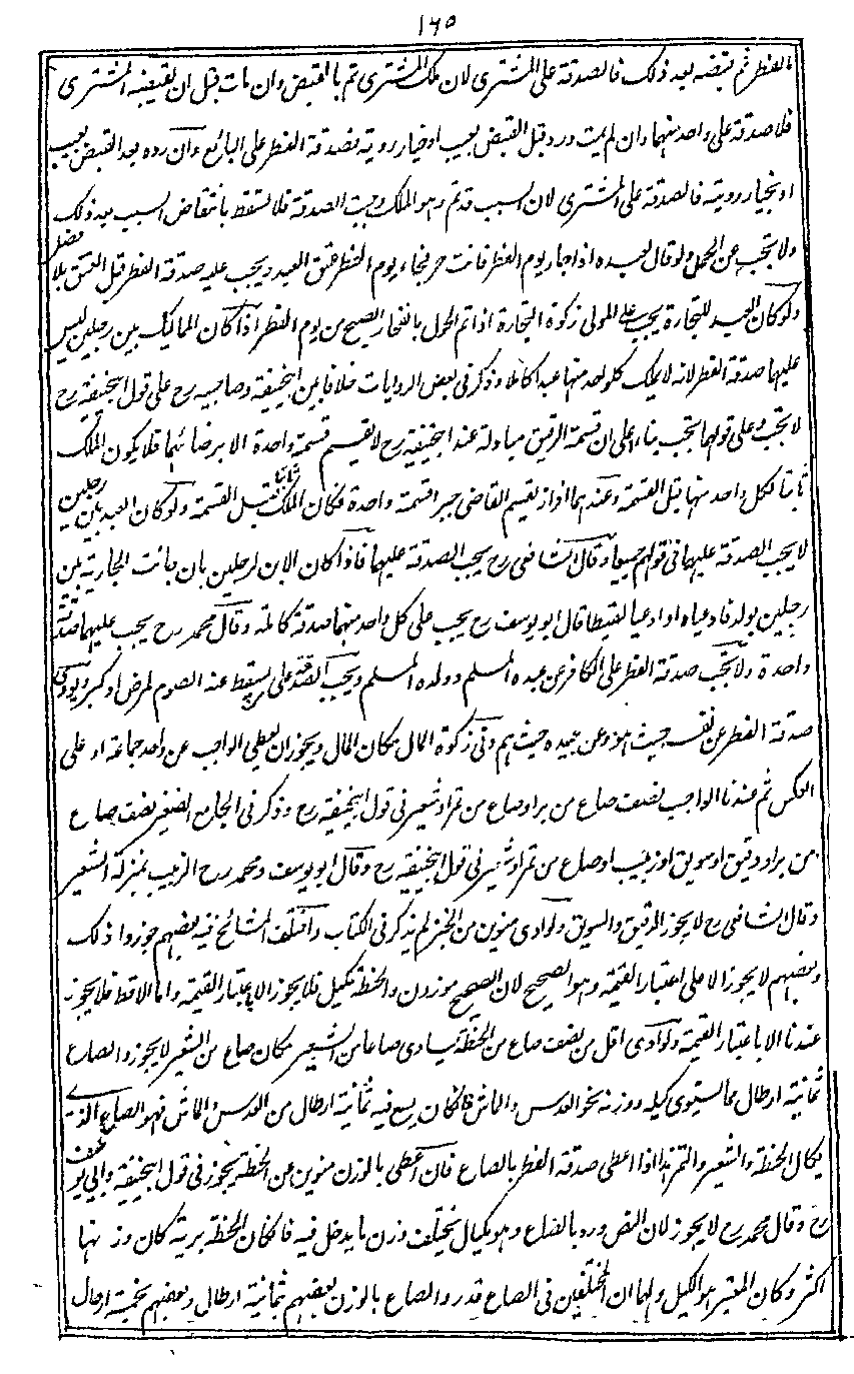 ١٦٥
الفطر ثم قبضه بعد ذلك فالصدقة على المشترى لان ملك المشترى تم بالقبض وان مات قبل ان يقبضه المشترى
فلا صدقة على واحد منهما وان لم يمت ورد قبل القبض بعيب او خيار روية فصدقة الفطر على البائع وان رده بعد القبض بعيب
او بخيار روية فالصدقة على المشترى لان السبب قد تم وهو الملك وجبت الصدقة فلا تسقط بانتقاض السبب بعد ذلك
ولا تجب عن الحمل ولو قال لعبده اذا جاء يوم الفطر فانت حر فجاء يوم الفطر عتق العبد ويجب عليه صدقة الفطر قبل العتق بلا فصل
ولو كان العبد للتجارة يجب على المولى زكوة التجارة اذا تم الحول بانفجار الصبح من يوم الفطر اذا كان المماليك بين رجلين ليس
عليهما صدقة الفطر لانه لا يملك كل واحد منهما عبدا كاملا وذكر فى بعض الروايات خلافا بين ابيحنيفة وصاحبيه رح على قول ابيحنيفة رح
لا تجب وعلى قولهما تجب بناء على ان قسمة الرقيق مبادلة عند ابيحنيفة رح لا تقسم قسمة واحدة الا برضائهما فلا يكون الملك
ثابتا لكل واحد منهما قبل القسمة وعندهما افراز يقسم القاضى جبرا قسمة واحدة فكان الملك ثابتا قبل القسمة ولو كان العبد بين رجلين
لا يجب الصدقة عليهما فى قولهم جميعا وقال الشافعى رح يجب الصدقة عليهما فاذا كان الابن لرجلين بان جاءت الجارية بين
رجلين بولد فادعياه او ادعيا لقيطا قال ابو يوسف رح يجب على كل واحد منهما صدقة كاملة وقال محمد رح يجب عليهما صدقة
واحدة ولا تجب صدقة الفطر على الكافر عن عبده المسلم وولده المسلم ويجب الصدقة على من يسقط عنه الصوم لمرض او كبر ويودى
صدقة الفطر عن نفسه حيث هو وعن عبيده حيث هم وفى زكوة المال مكان المال ويجوز ان يعطى الواجب عن واحد جماعة او على
العكس ثم عندنا الواجب نصف صاع من بر او صاع من تمر او شعير فى قول ابيحنيفة رح وذكر فى الجامع الصغير نصف صاع
من بر او دقيق او سويق او زبيب او صاع من تمر او شعير فى قول ابيحنيفة رح وقال ابو يوسف ومحمد رح الزبيب بمنزلة الشعير
وقال الشافعى رح لا يجوز الدقيق والسويق ولو ادى منوين من الخبز لم يذكر فى الكتاب واختلف المشائخ فيه بعضهم جوزوا ذلك
وبعضهم لا يجوز الا على اعتبار القيمة وهو الصحيح لان الصحيح موزون والحنطة مكيل فلا يجوز الا باعتبار القيمة واما الاقط فلا يجوز
عندنا الا باعتبار القيمة ولو ادى اقل من نصف صاع من الحنطة يساوى صاعا من الشعير مكان صاع من الشعير لا يجوز والصاع
ثمانية ارطال مما يستوى كيله ووزنه نحو العدس والماش فما كان يسع فيه ثمانية ارطال من العدس والماش فهو الصاع الذى
يكال الحنطة والشعير والتمر هذا اذا اعطى صدقة الفطر بالصاع فان اعطى بالوزن منوين من الحنطة يجوز فى قول ابيحنيفة وابى يوسف
رح وقال محمد رح لا يجوز لان النص ورد بالصاع وهو مكيال يختلف وزن ما يدخل فيه فاذا كان الحنطة برية كان وزنها
اكثر وكان المعتبر هو الكيل ولهما ان المختلفين فى الصاع قدروا الصاع بالوزن بعضهم ثمانية ارطال وبعضهم بخمسة ارطال